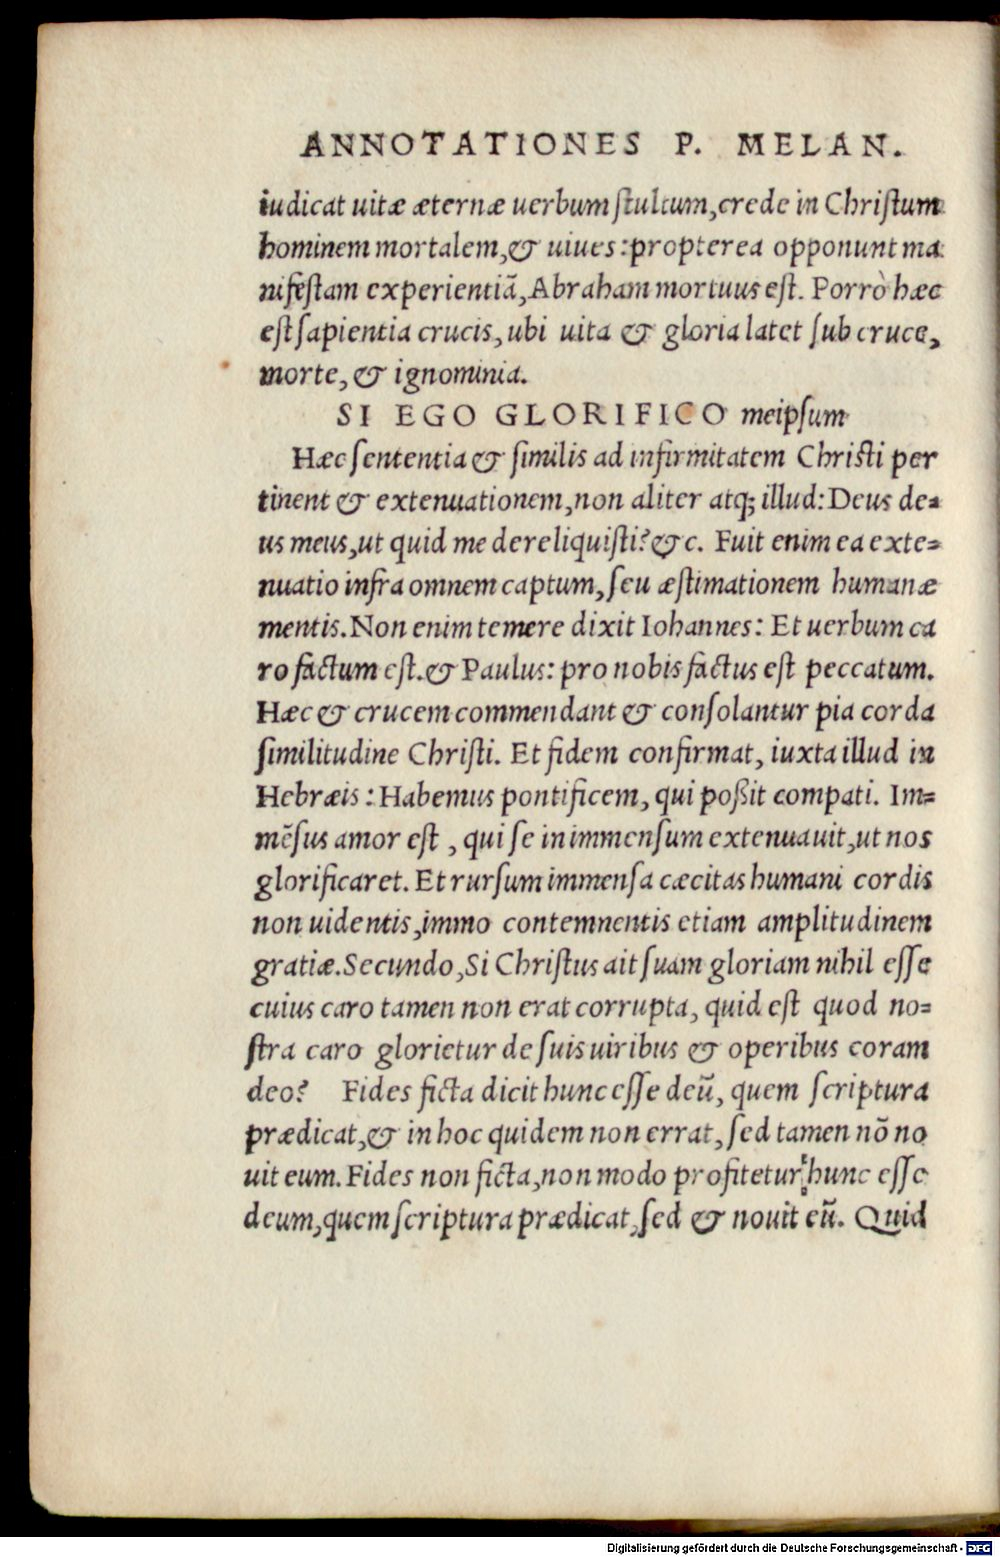 ANNOTATIONES P. MELAN.
iudicat uitæ æternæ uerbum ſtultum, crede in Chriſtum
hominem mortalem, & uiues: propterea opponunt ma
nifeſtam experientiā, Abraham mortuus eſt. Porrò hæc
eſt ſapientia crucis, ubi uita & gloria latet ſub cruce,
morte, & ignominia.
SI EGO GLORIFICO meipſum
Hæc ſententia & ſimilis ad infirmitatem Chriſti per
tinent & extenuationem, non aliter atq; illud: Deus de-
us meus, ut quid me dereliquiſti? &c. Fuit enim ea exte-
nuatio infra omnem captum, ſeu æſtimationem humanæ
mentis. Non enim temere dixit Iohannes: Et uerbum ca
ro factum eſt. & Paulus: pro nobis factus eſt peccatum.
Hæc & crucem commendant & conſolantur pia corda
ſimilitudine Chriſti. Et fidem confirmat, iuxta illud in
Hebræis: Habemus pontificem, qui poßit compati. Im-
mēſus amor eſt, qui ſe in immenſum extenuauit, ut nos
glorificaret. Et rurſum immenſa cæcitas humani cordis
non uidentis, immo contemnentis etiam amplitudinem
gratiæ. Secundo, Si Chriſtus ait ſuam gloriam nihil eſſe
cuius caro tamen non erat corrupta, quid eſt quod no-
ſtra caro glorietur de ſuis uiribus & operibus coram
deo? Fides ficta dicit hunc eſſe deū, quem ſcriptura
prædicat, & in hoc quidem non errat, ſed tamen nō no
uit eum. Fides non ficta, non modo profitetur hunc eſſe
deum, quem ſcriptura prædicat, ſed & nouit eū. Quid
Digitalisierung gefördert durch die Deutsche Forschungsgemeinschaft - DFG